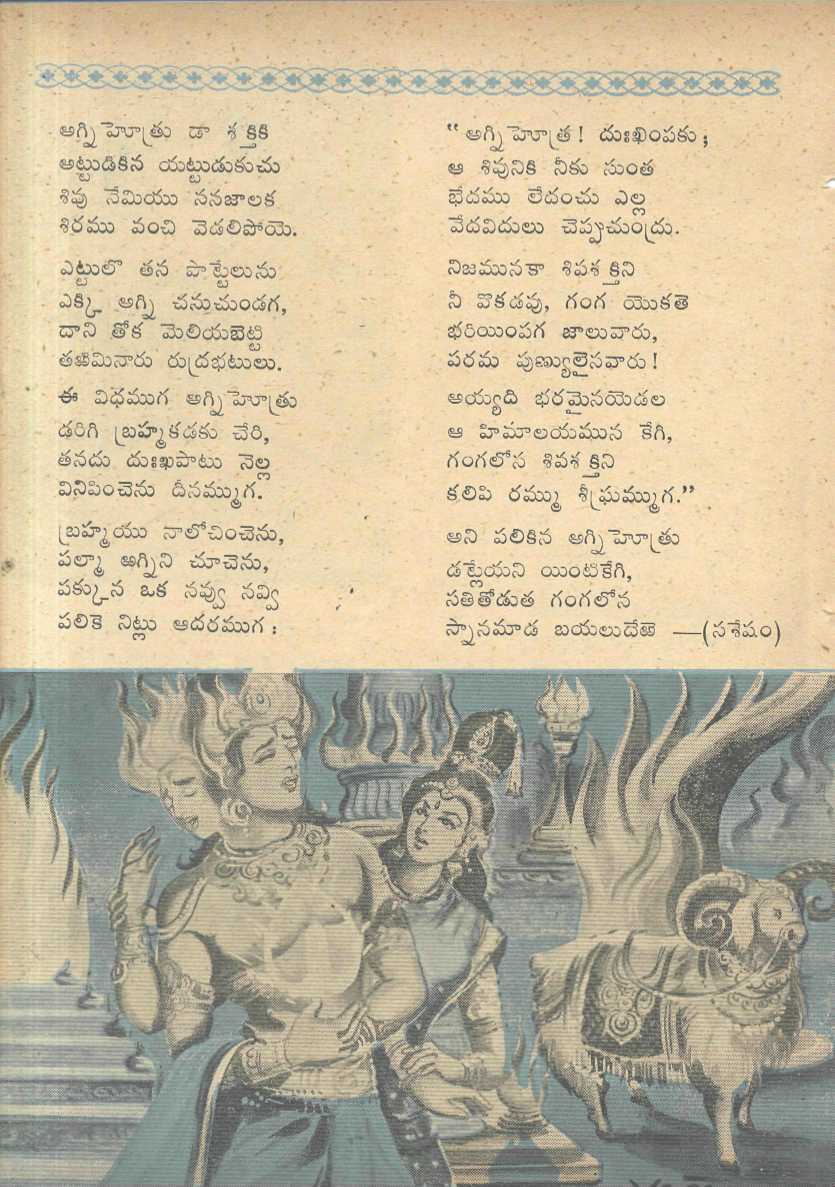 అగ్నిహోత్రు డా శక్తికి
అట్టుడికిన యట్టుడుకుచు
శివు నేమియు ననజాలక
శిరము వంచి వెడలిపోయె.
ఎట్టులొ తన పొట్టేలును
ఎక్కి అగ్ని చనుచుండగ,
దాని తోక మెలియబెట్టి
తఱిమినారు రుద్రభటులు.
ఈ విధముగ అగ్నిహోత్రు
డరిగి బ్రహ్మకడకు చేరి,
తనదు దుఃఖపాటు నెల్ల
వినిపించెను దీనమ్ముగ.
బ్రహ్మయు నాలోచించెను,
పల్మా అగ్నిని చూచెను,
పక్కున ఒక నవ్వు నవ్వి
పలికె నిట్లు ఆదరముగ :
“ అగ్నిహోత్ర ! దుఃఖింపకు ;
ఆ శివునికి నీకు సుంత
భేదము లేదంచు ఎల్ల
వేదవిదులు చెప్పుచుంద్రు.
నిజమునకా శివశక్తిని
నీ వొకడవు, గంగ యొకతె
భరియింపగ జాలువారు,
పరమ పుణ్యులైనవారు !
అయ్యది భరమైనయెడల
ఆ హిమాలయమున కేగి,
గంగలోన శివశక్తిని
కలిపి రమ్ము శీఘ్రమ్ముగ.”
అని పలికిన అగ్నిహోత్రు
డట్లేయని యింటికేగి,
సతితోడుత గంగలోన
స్నానమాడ బయలుదేఱె —(సశేషం)